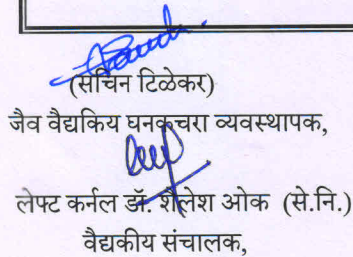 (सचिन टिळेकर)
जैव वैद्यकिय घनकचरा व्यवस्थापक,
लेफ्ट कर्नल डॉ. शैलेश ओक (से.नि.)
वैद्यकीय संचालक,